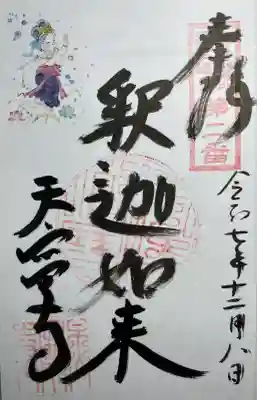 奉拝
第二番
令和七年十二月八日
釈迦如来
天寧寺